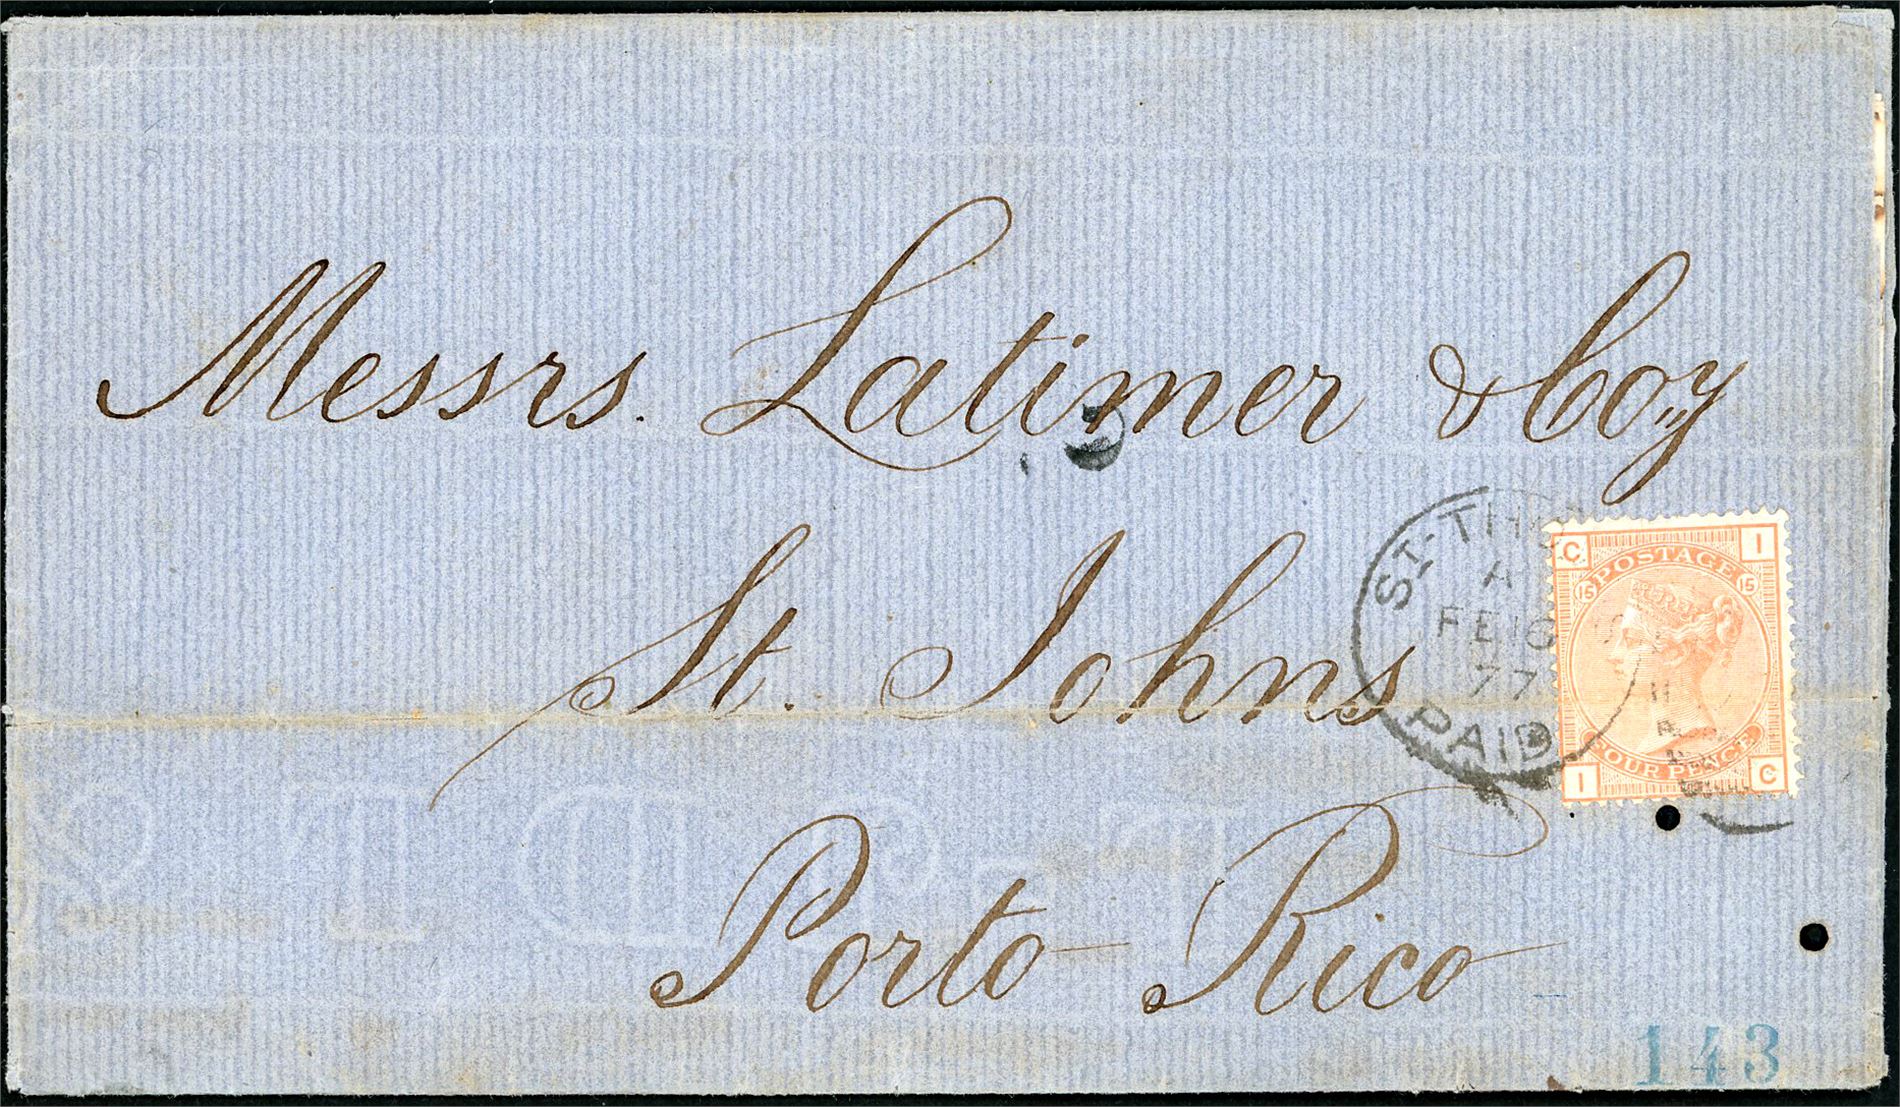 Messrs. Latimer & Coy
St. Johns
Porto Rico
ST. THO
A
FE 16
77
PAID
C I
15 POSTAGE 15
FOUR PENCE
I C
143